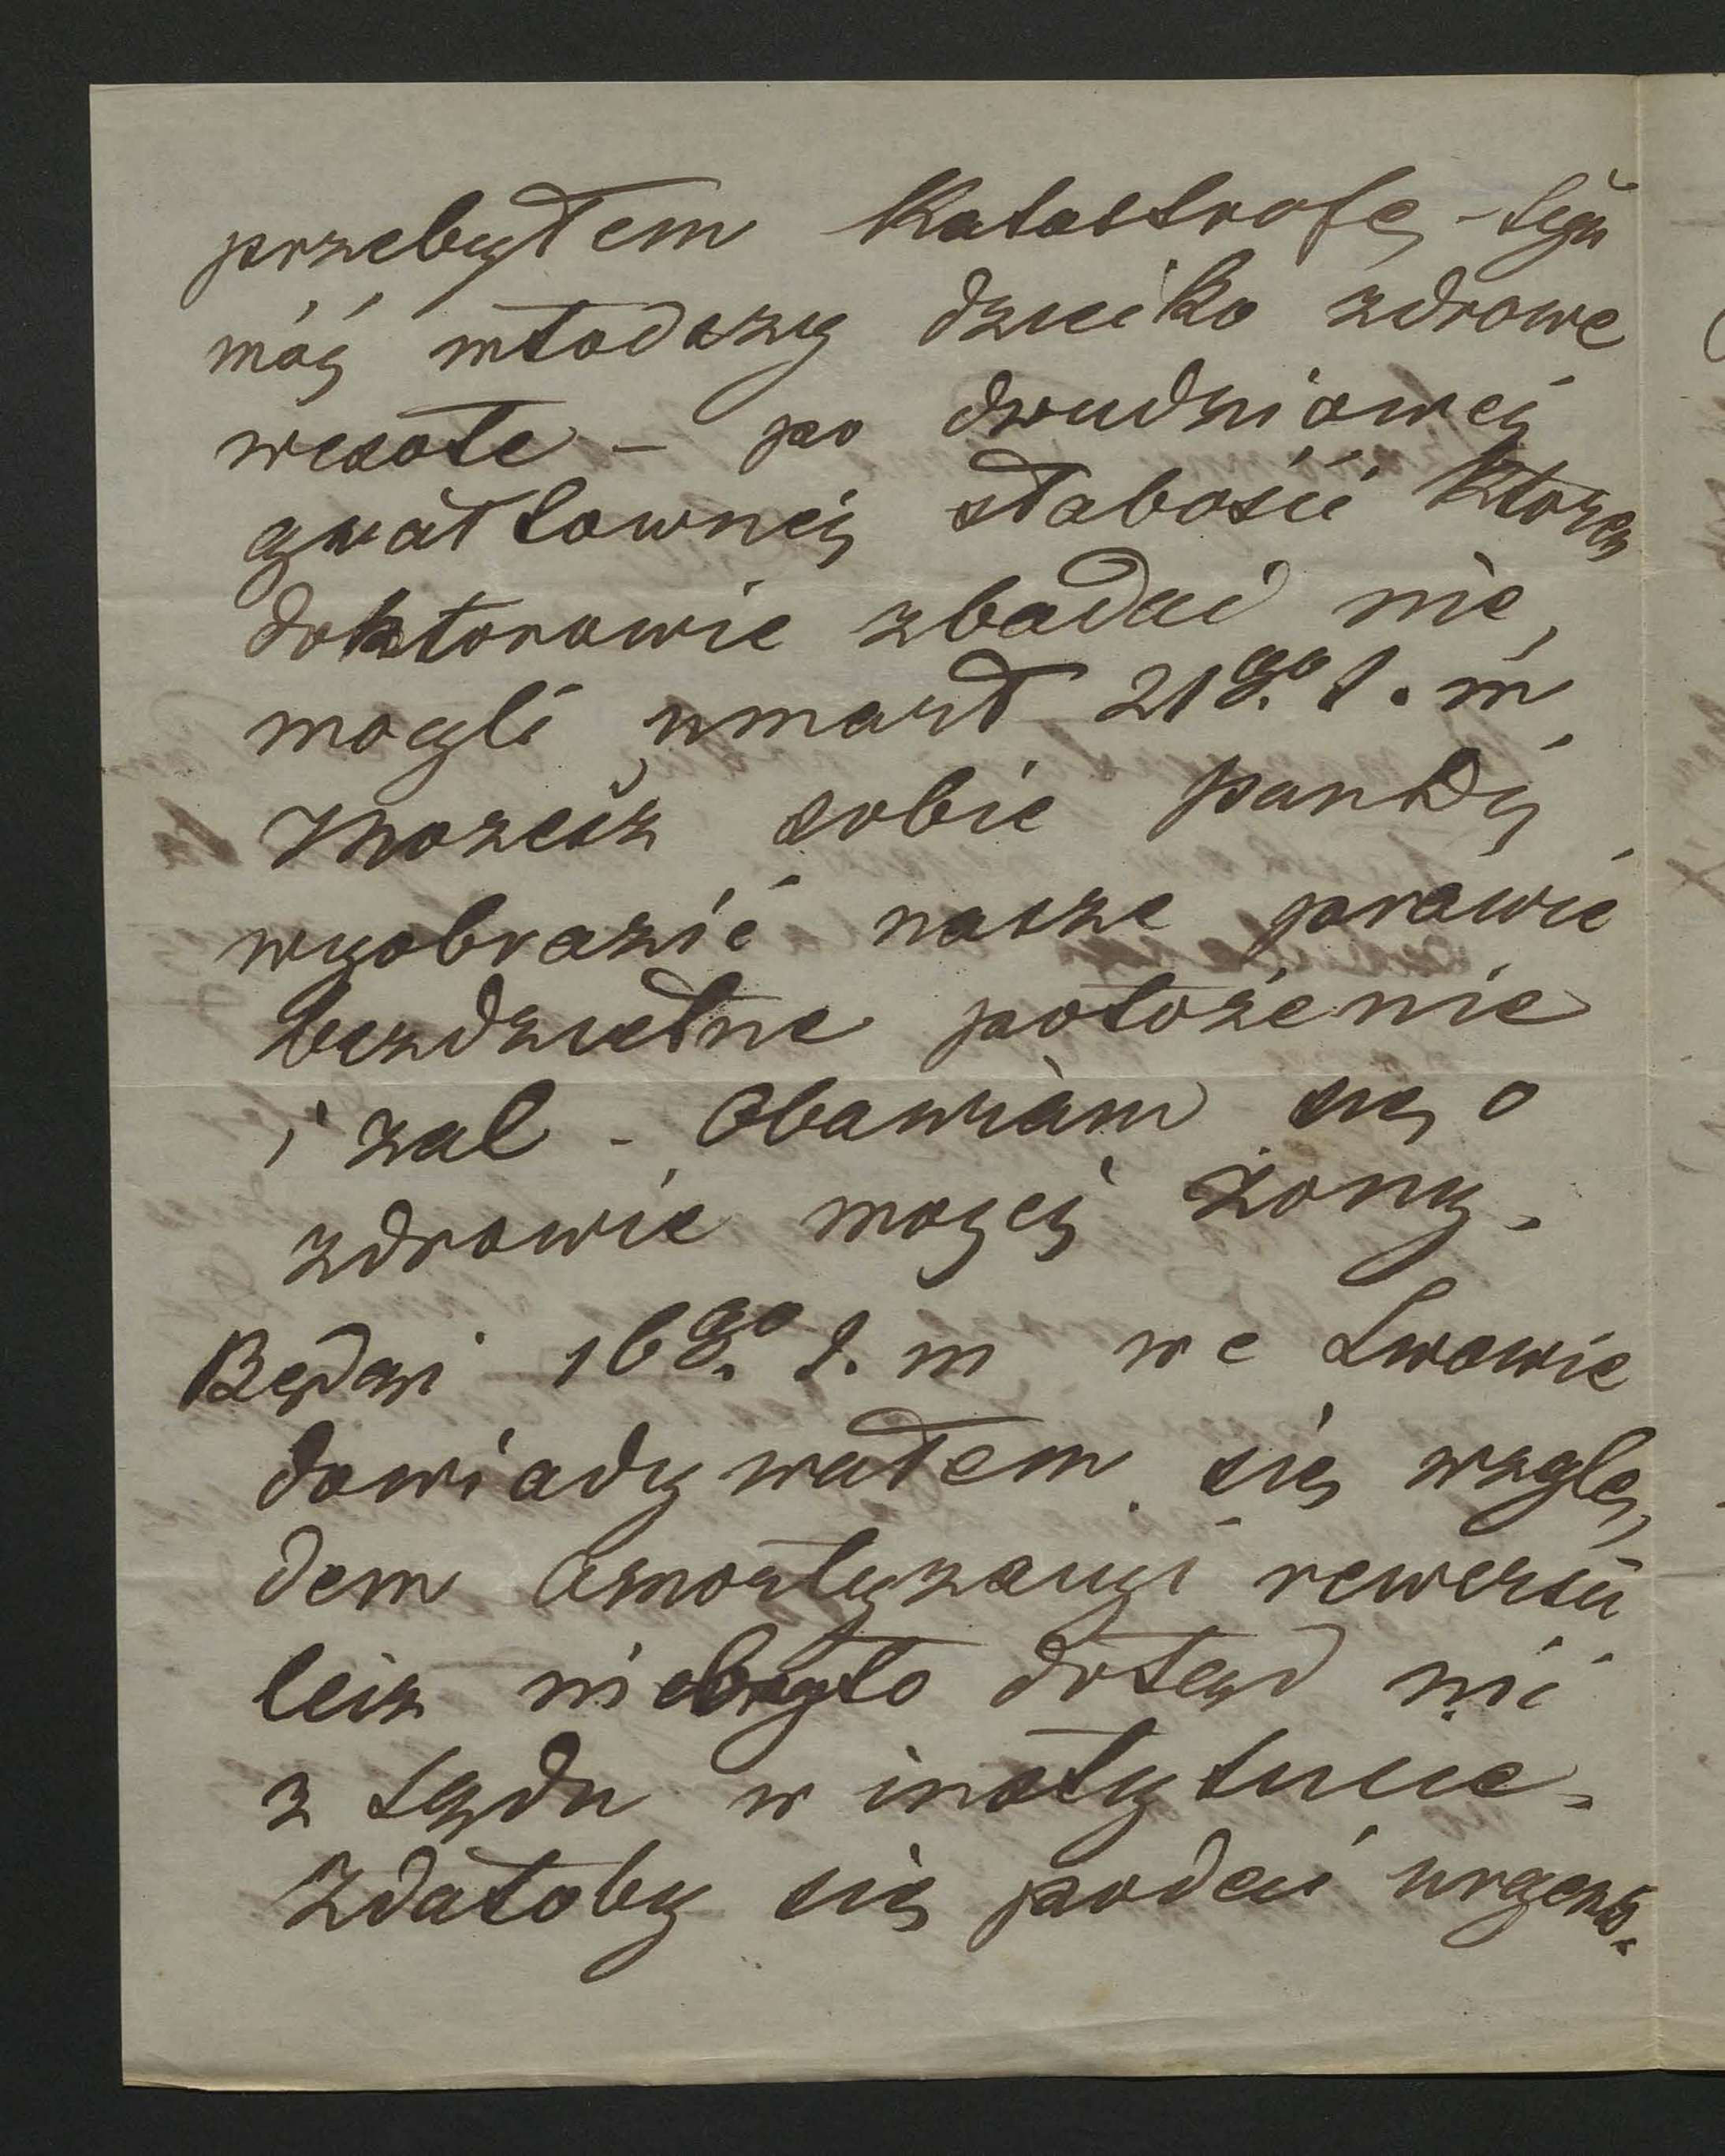 przebyłem Katastrofę – Syn
mój młodszy dziecko zdrowe
wesołe – po dwudniowej
gwałtownej słabości którą
doktorowie zbadać nie
mogli umarł 21go t. m.
Możesz sobie
wyobrazić nasze prawie
bezdzietne położenie
i żal – Obawiam się o
zdrowie mojej żony.
Będąc 16go t. m we Lwowie
dowiadywałem się wzglę,
dem Amortyzacyi rewersu
lecz niebyło dotąd nic
z sądu w instytucie.
Zdałoby się podać urgens.